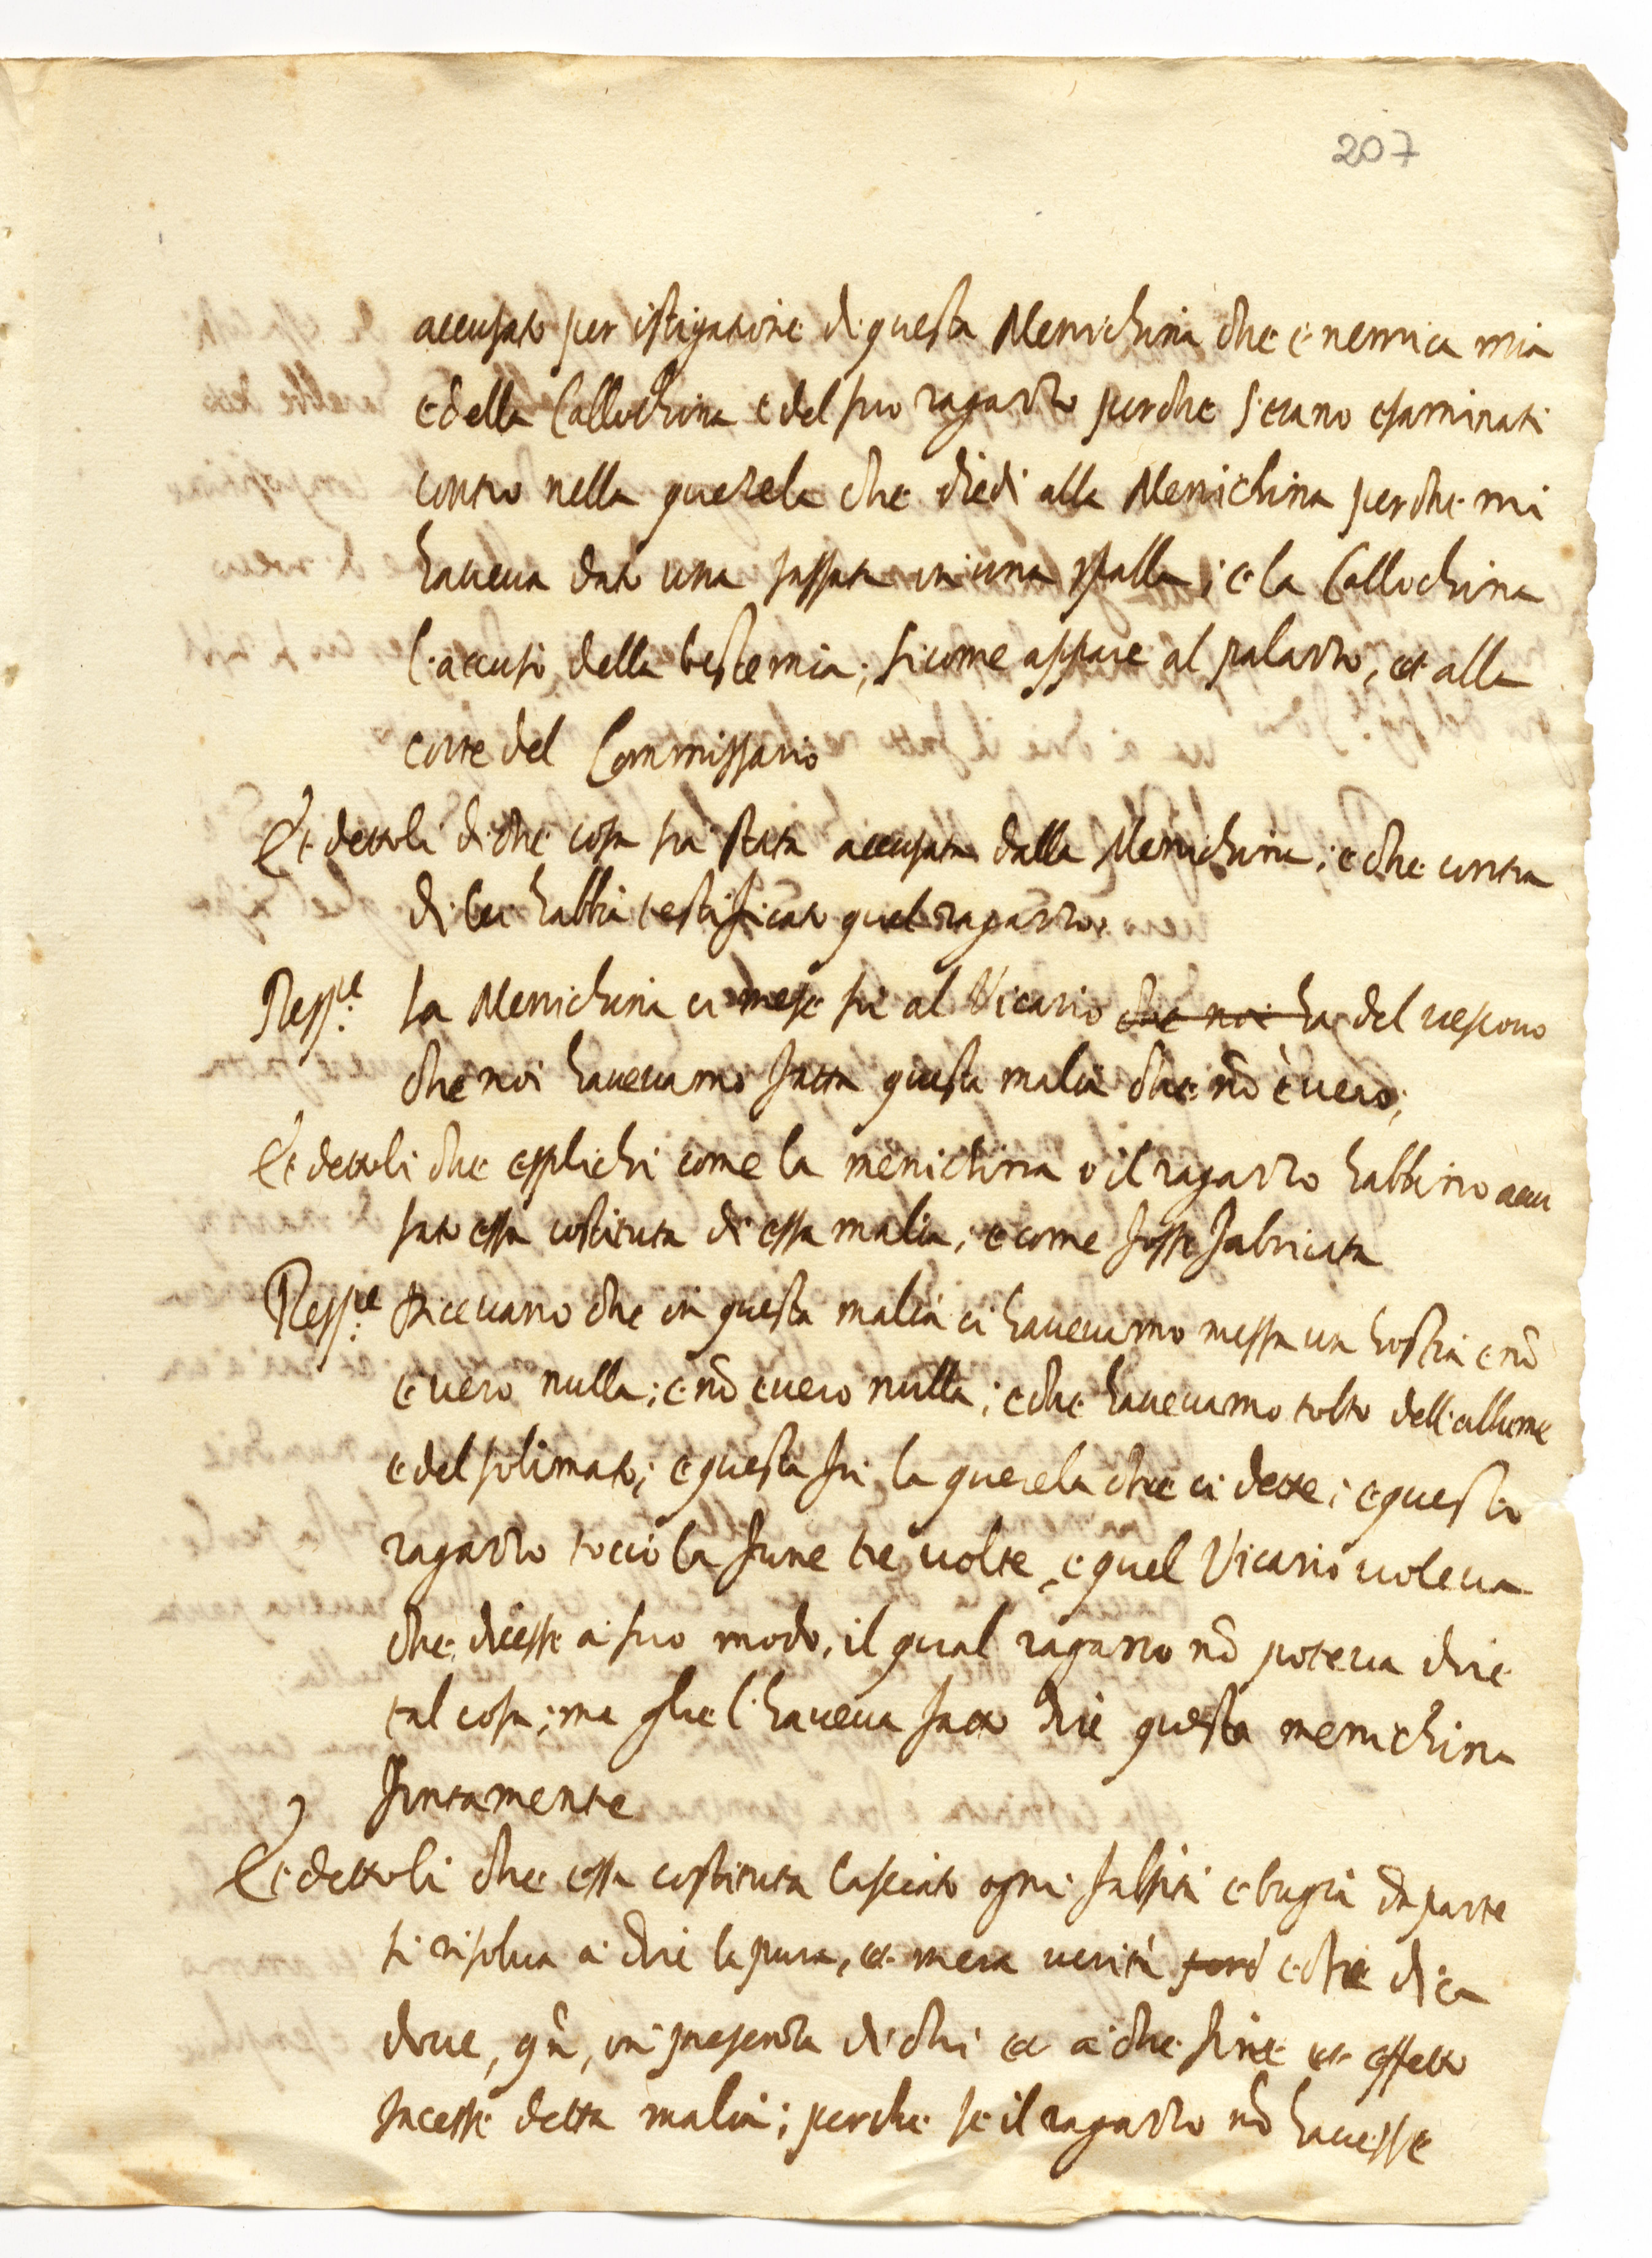 207
accusato per istigatione di questa Menichina che è nemica mia
e della Callochina e del suo ragazzo perche s'erano esaminati
contro nella querela che diedi alla Menichina perche mi
haueua dato una sassata in una spalla; e la Callochina
l'accusò della bestemia; sicome appare al palazzo, et alla
corte del Commissario
Et dettoli di che cosa sia stata accusata dalla Menichina; e che contra
di lei habbia testificato quel ragazzo.
Resp.e La Menichina ci mese su al Vicario che noi ha del uescouo
che noi haueuamo fatta questa malia che nõ è uero;
Et dettoli che esplichi come la menichina o il ragazzo habbino accu
sato essa costituta di essa malia, e come fosse fabricata
Resp.e Diceuano che in questa malia ci haueuamo messa un hostia e nõ
è uero nulla; e nõ è uero nulla; e che haueuamo tolto dell'allume
e del solimato; e questa fu la querela che ci dette; e questo
ragazzo toccò la fune tre uolte, e quel Vicario uoleua
che dicesse a suo modo, il qual ragazzo nõ poteua dire
tal cosa; ma glie l'haueua fatto dire questa menichina
fintamente
Et dettoli che essa costituta lasciato ogni falsità e bugia da parte
si risolua a dire la pura, et mera uerità però e che dica
doue, qñ, in presenza di chi et a che fine et effetto
facesse detta malia; perche se il ragazzo nõ hauesse